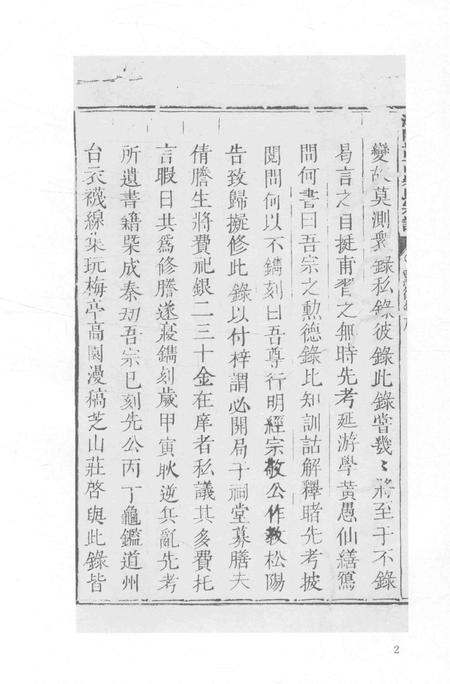 變故莫測衆錄私錄彼錄此錄嘗幾〻將至于不錄
曷言之目挺甫習之無時先考延游學黃愚仙繕寫
問何書曰吾宗之勳德錄比知訓詁解釋睹先考披
閱問何以不鐫刻曰吾尊行明經宗敎公作敎松陽
告致歸擬修此錄以付梓謂必開局于祠堂募膳夫
倩謄生將費祀銀二三十金在庠者私議其多費托
言暇日共爲修謄遂寢鐫刻歲甲寅耿逆兵亂先考
所遺書籍柴成秦刧吾宗已刻先公丙丁龜鑑道州
台衣襪線集玩梅亭高漫稿芝山莊啓與此錄皆
2